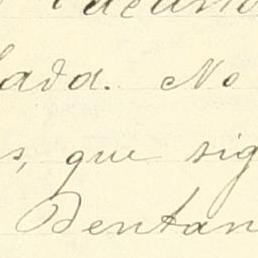 ada. No
s, que sig
Dentan